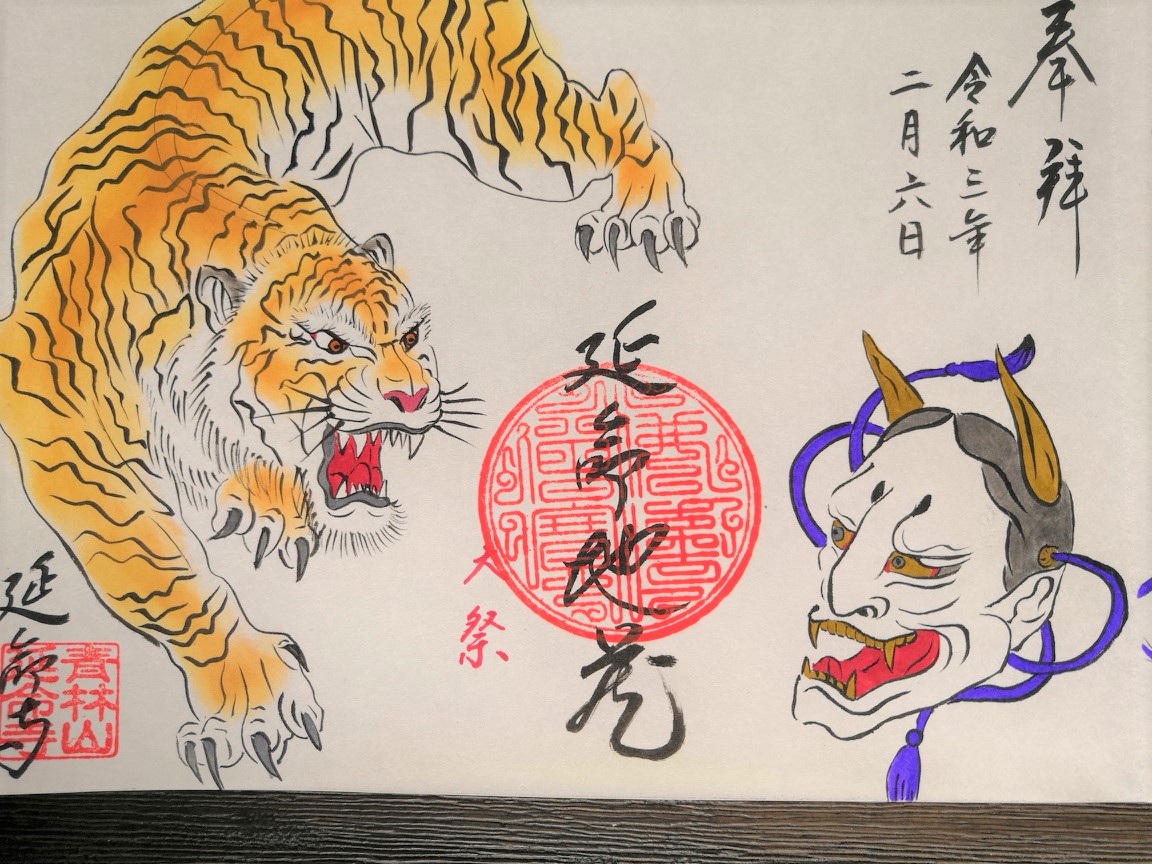 奉拝
令和三年
二月六日
延命地蔵
大祭
延命寺
青林山
延命寺